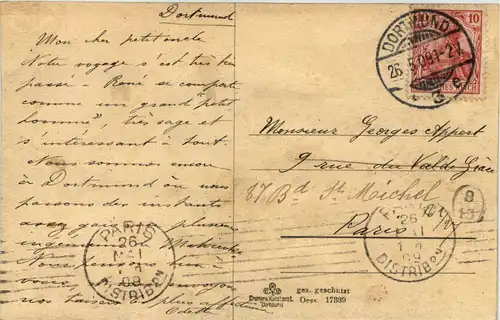 Dortmund
Mon cher petit oncle
Notre voyage s'est très bien
passé - René se comporte
comme un grand "petit
homme", très sage et
s'intéressant à tout.
Nous sommes encore
à Dortmund où nous
passons des instants
avec plusieurs
ingénieurs
Nous à
vous, envoyons
nos baisers les plus affectueux
Odette
DORTMUND
26.5.09.1-2
3 e
10
Monsieur Georges Appert
9 rue du Val de Grâce
87 Bd St Michel
Paris
PARIS
26
MAI
09
DISTRIBON
26
09
DISTRIBON
B
ges. geschützt
Dess. 17889
Dortmund